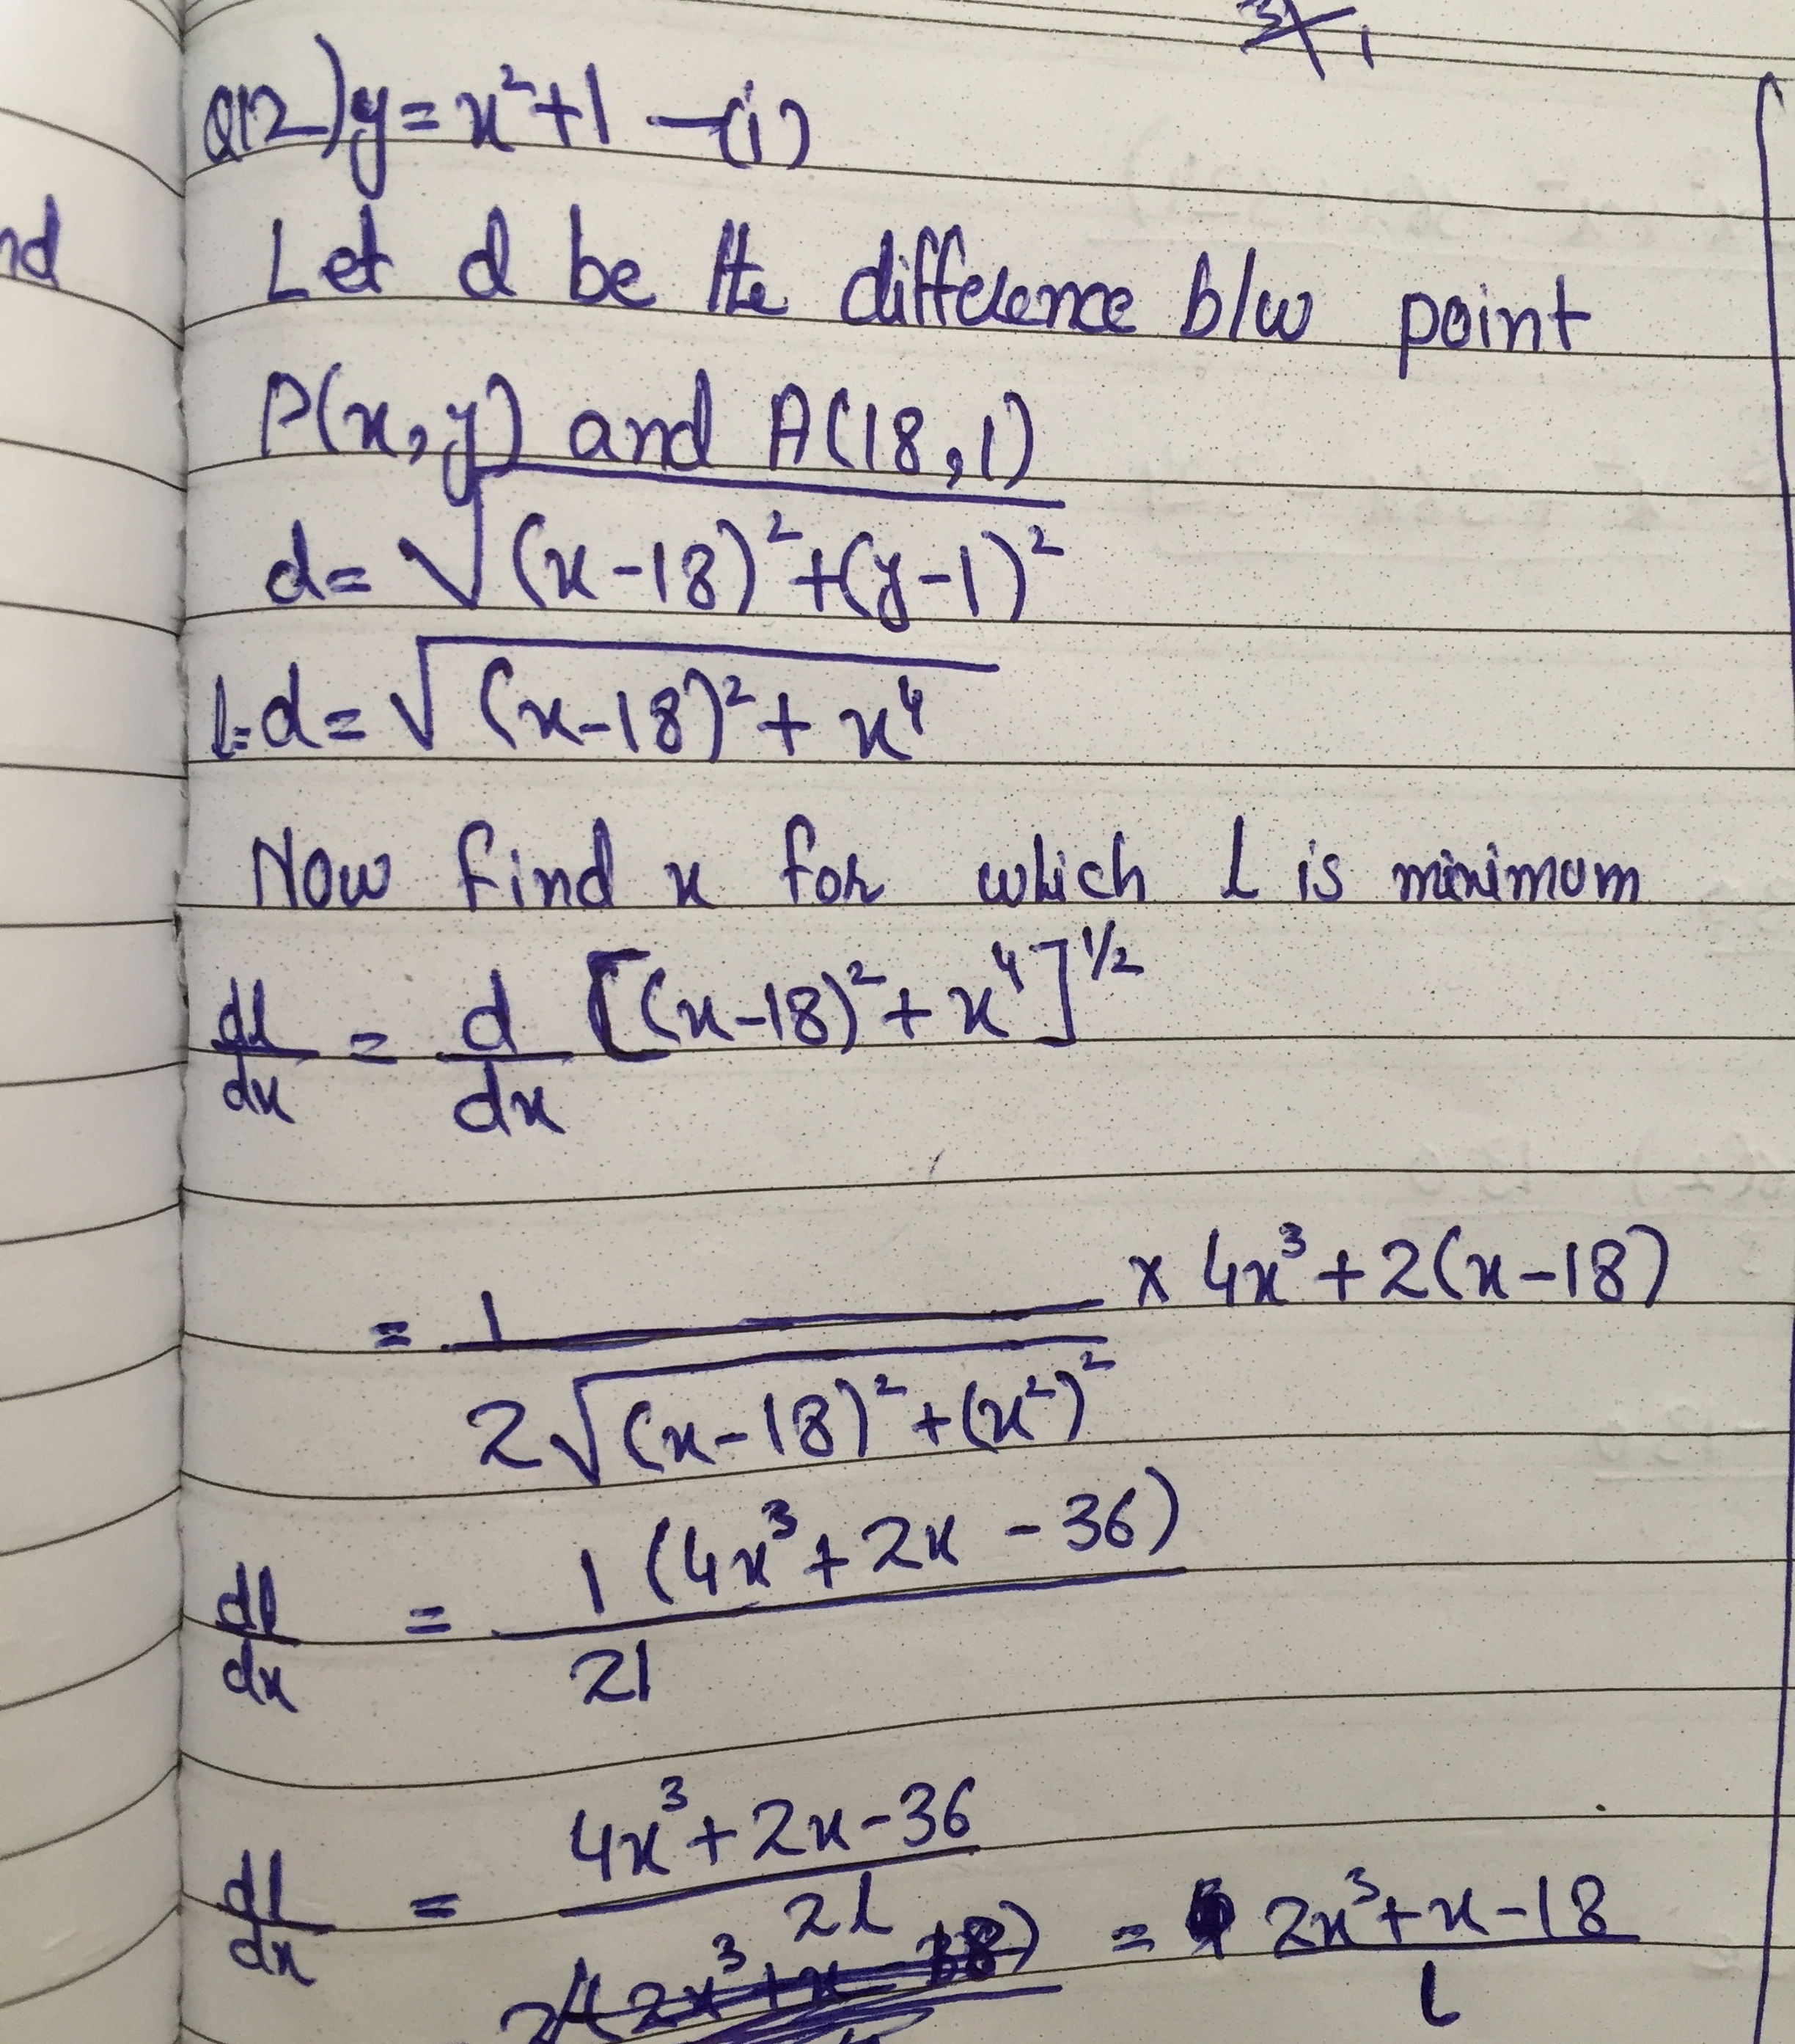 3 1
nd
Q12) y = x²+1 —(i)
Let d be the difference b/w point
P(x,y) and A(18,1)
d= √((x-18)²+(y-1)²)
l=d= √((x-18)²+x⁴)
Now find x for which L is minimum
dl/dx = d/dx [(x-18)²+x⁴]^1/2
= 1/(2√((x-18)²+(x²)²)) × 4x³+2(x-18)
dl/dx = 1(4x³+2x-36)/2l
dl/dx = (4x³+2x-36)/2l = (2x³+x-18)/l